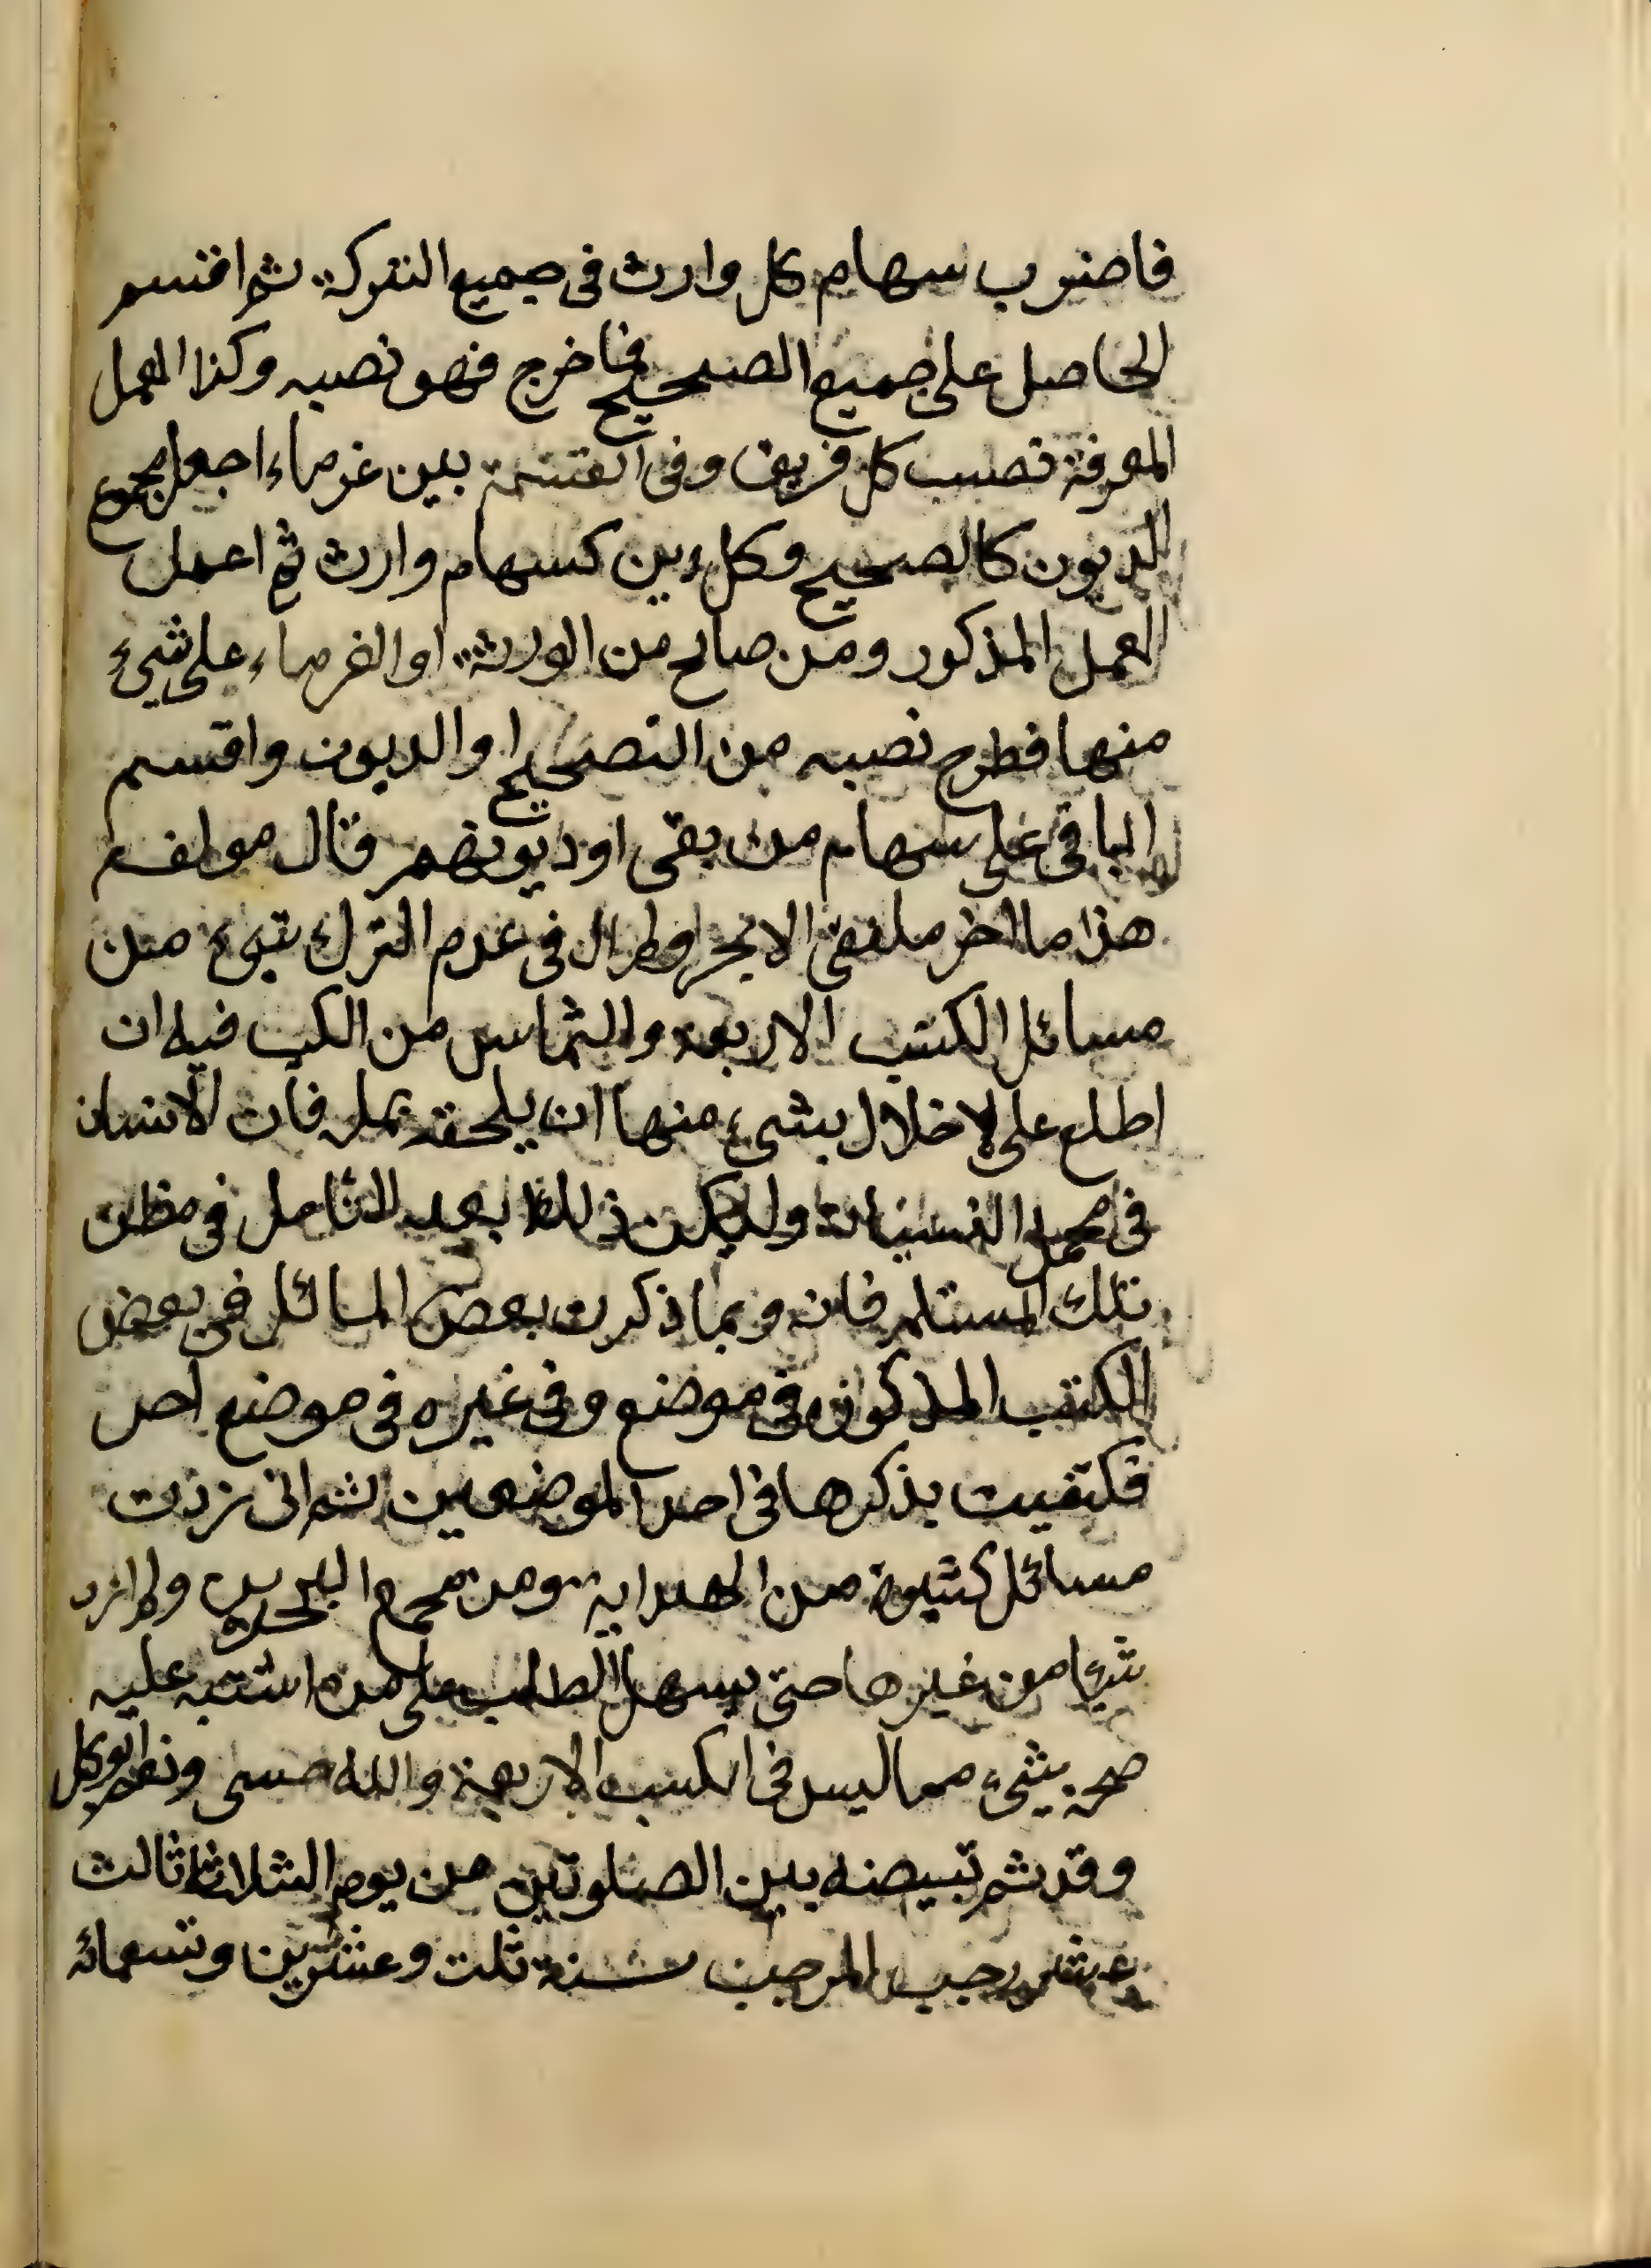 فاضرب سهام كل وارث فى جميع التركة ثم اقسم
الحاصل على جميع الصحيح فما خرج فهو نصبه وكذا العمل
لمعرفة نصيب كل فريق وفى القسمة بين غرماء اجعل مجموع
الديون كالصحيح وكل دين كسهام وارث ثم اعمل
العمل المذكور ومن صالح من الورثة او الغرماء على شيء
منها فطرح نصبه من التصحيح او الديون واقسم
الباقى على سهام من بقى او ديونهم قال مولفه
هذا ما اخر ملتقى الابحر ولم ال فى عدم الترك شيء من
مسائل الكتب الاربعة والتماس من فيه ان
اطلع على الاخلال بشيء منها ان يلحقه بمله فان الانسان
فى محل النسيان وليكن ذلك بعد التامل فى مظان
تلك فانه وبما ذكرت بعض المسائل فى بعض
الكتب المذكوره فى موضع وفى غيره فى موضع اخر
فكتفيت بذكرها فى احد الموضعين ثم انى زدت
مسائل كثيرة من الهداية ومن مجمع البحرين ولم ازد
شيا من غيرها حتى يسهل الطلب على من اشتبه عليه
صحة شيء مما ليس فى الكتب الاربعة والله حسبى ونعم الوكيل
وقد تم تبيضه بين الصلوتين من يوم الثلاثا ثالث
عشر رجب المرجب سنة ثلث وعشرين وتسعمائه